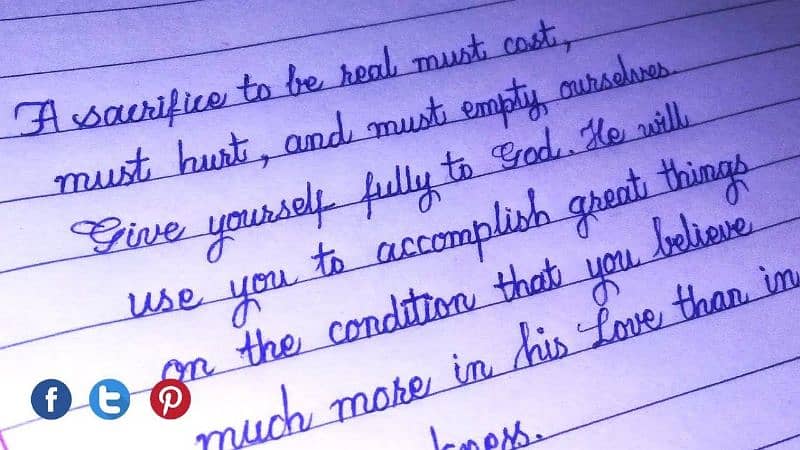 A sacrifice to be real must cost,
must hurt, and must empty ourselves.
Give yourself fully to God. He will
use you to accomplish great things
on the condition that you believe
much more in his Love than in